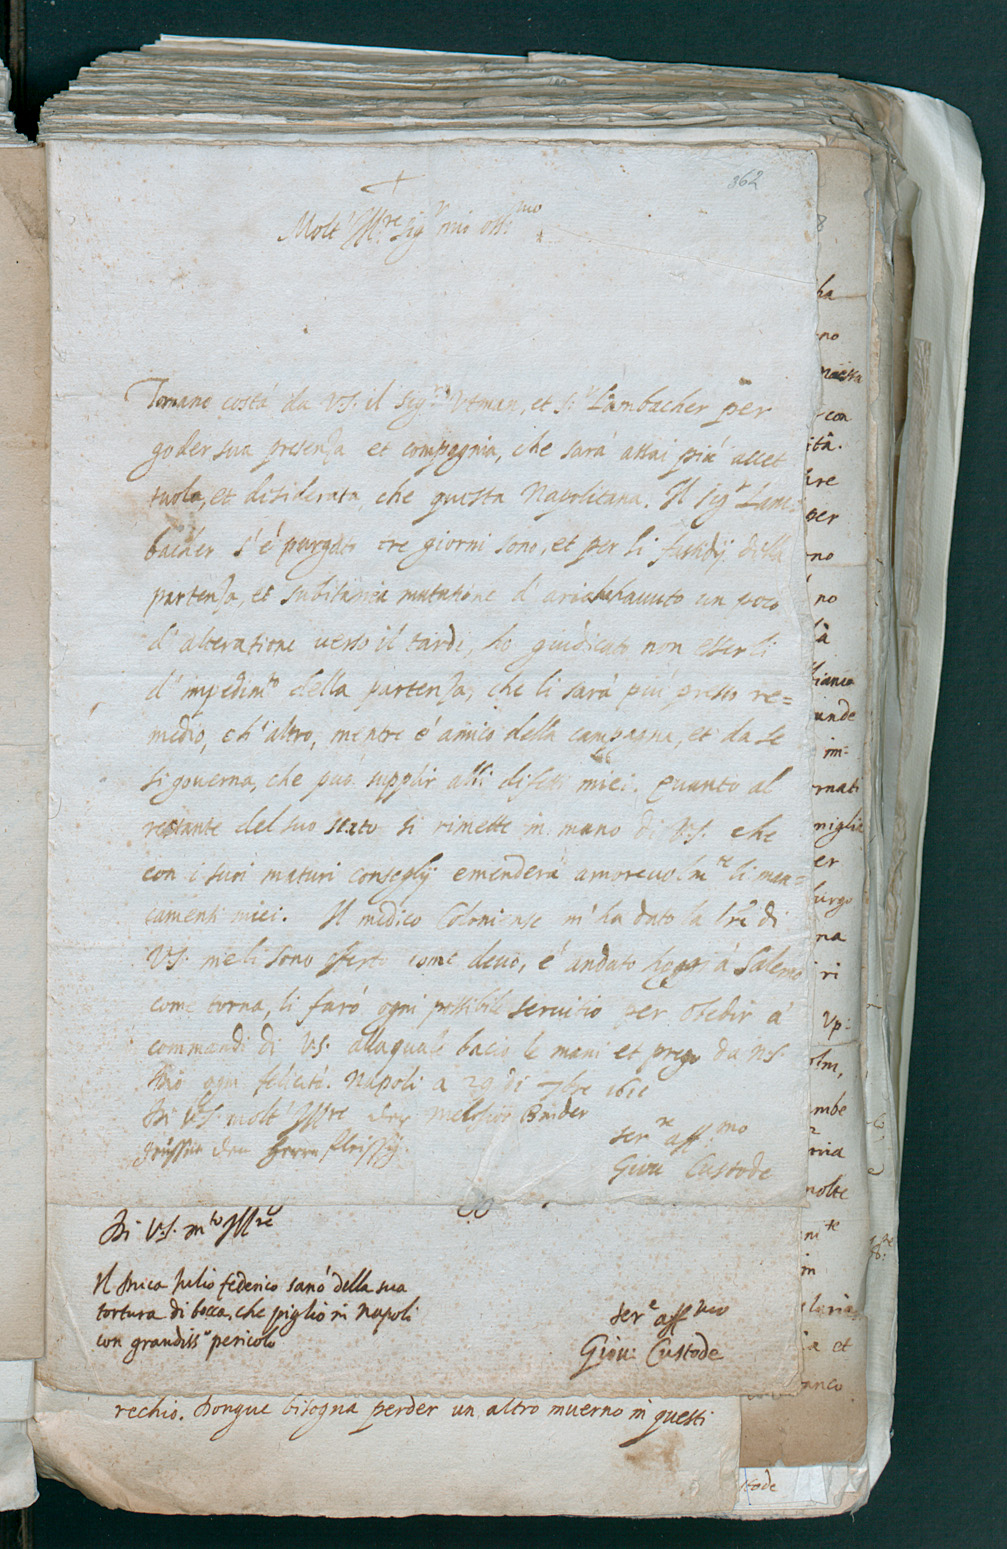 362
+
Molt' Illre Sigr mio ossmo
Tornano costá da V.S. il Sigr Utman, et Sr Lambacher per
goder sua presenza et compagnia, che sará assai piú accet
tuola, et disiderata che questa Napolitana. Il Sigr Lam=
bacher s'é purgato tre giorni sono, et per li fastidij della
partenza, et subitanea mutatione d'aria ha havuto un poco
d'alteratione verso il tardi, ho giudicato non esserli
d'impedimto della partenza, che li sará piú presto re=
medio, ch'altro, mentre é amico della campagna, et da se
si governa, che può supplir alli difetti miei. Quanto al
restante del suo stato si rimette in mano di V.S. che
con i suoi maturi conseglij emenderá amorevolmte li man=
camenti miei. Il medico Coloniense m'ha dato la lre di
V.S. me li sono oferto come devo, é andato hoggi á Salerno
come torna, li faró ogni possibile servitio per obedir á
commandi di V.S. alla quale bacio le mani et prego da N.S.
Iddio ogni felicitá. Napoli a 29 di 7bre 1611
Di V.S. molt' Illre der Melchior Bader
grüssen den Herrn fleissig.
serre affmo
Giou Custode
Di V.S. mto Illre
Il Duca Julio federico sanó della sua
tortura di bocca, che piglio in Napoli
con grandiss.o pericolo
serre affmo
Giou: Custode
rechio. Dongue bisogna perder un altro inuerno in questi